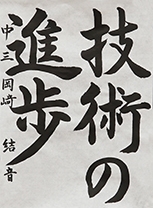 技術の
進歩
中三 岡崎 結音